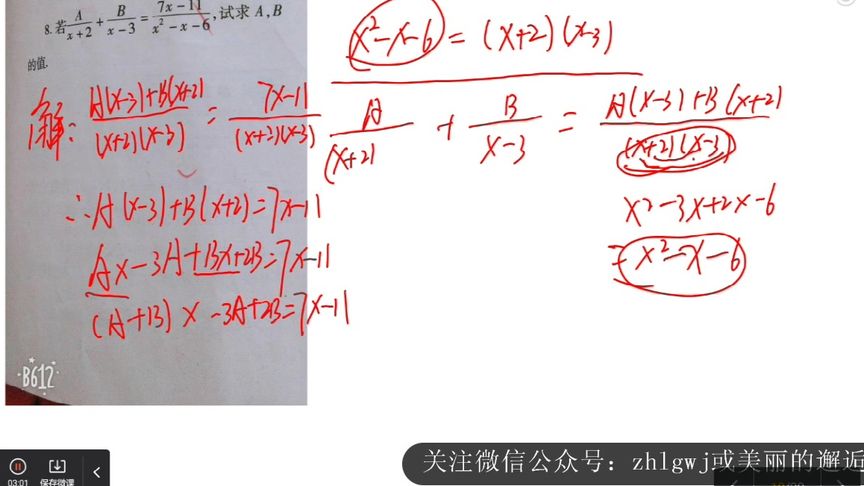 8.若 A/(x+2) + B/(x-3) = (7x-11)/(x²-x-6), 试求 A,B
的值.
x²-x-6 = (x+2)(x-3)
A/(x+2) + B/(x-3) = (A(x-3)+B(x+2))/((x+2)(x-3))
x²-3x+2x-6
= x²-x-6
解: (A(x-3)+B(x+2))/((x+2)(x-3)) = (7x-11)/((x+2)(x-3))
∴A(x-3)+B(x+2)=7x-11
Ax-3A+Bx+2B=7x-11
(A+B)x-3A+2B=7x-11
B612
03:01 保存微课
关注微信公众号：zhlgwj或美丽的邂逅